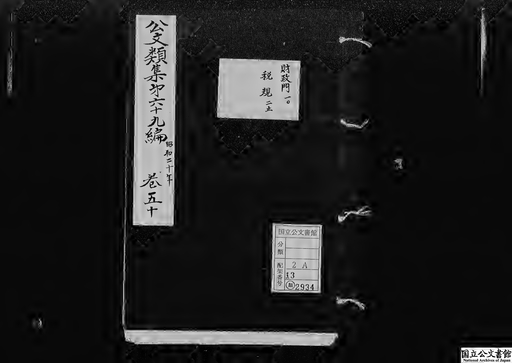 公文類集第六十九編 昭和二十年 巻五十
財政門 一〇
税規 二五
国立公文書館
分類
配架番号
2A
13
類2934
国立公文書館
National Archives of Japan